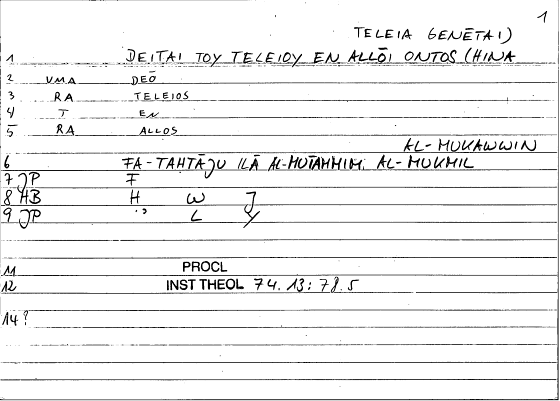 1
TELEIA GENĒTAI)
1 DEITAI TOY TELEIOY EN ALLŌI ONTOS (HINA
2 VMA DEŌ
3 RA TELEIOS
4 T EN
5 RA ALLOS
AL-MUKAWWIN
6 FA-TAHTĀJU ILĀ AL-MUTAMMIM, AL-MUKMIL
7 JP F
8 HB H W J
9 JP " L Y
11 PROCL
12 INST THEOL 74.13: 78.5
14?